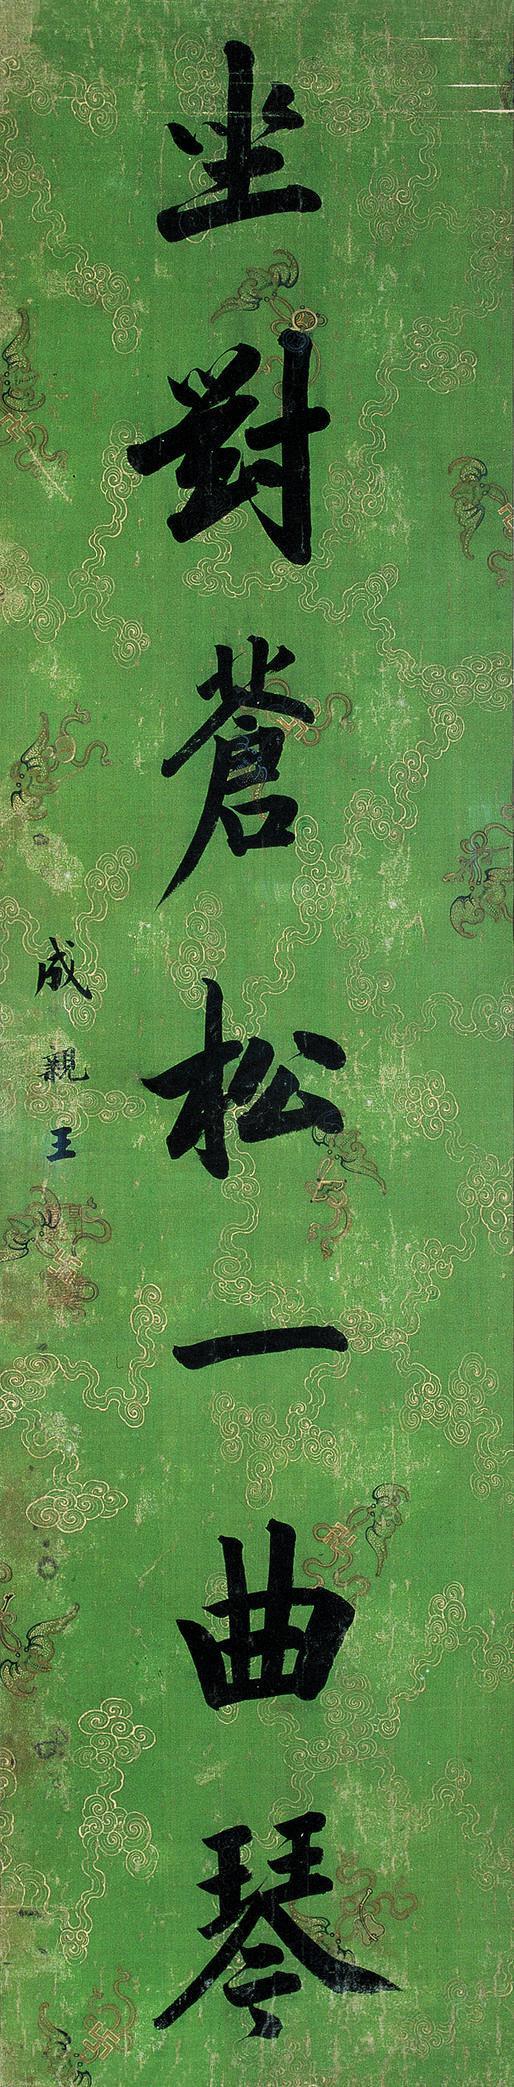 坐對蒼松一曲琴
成親王